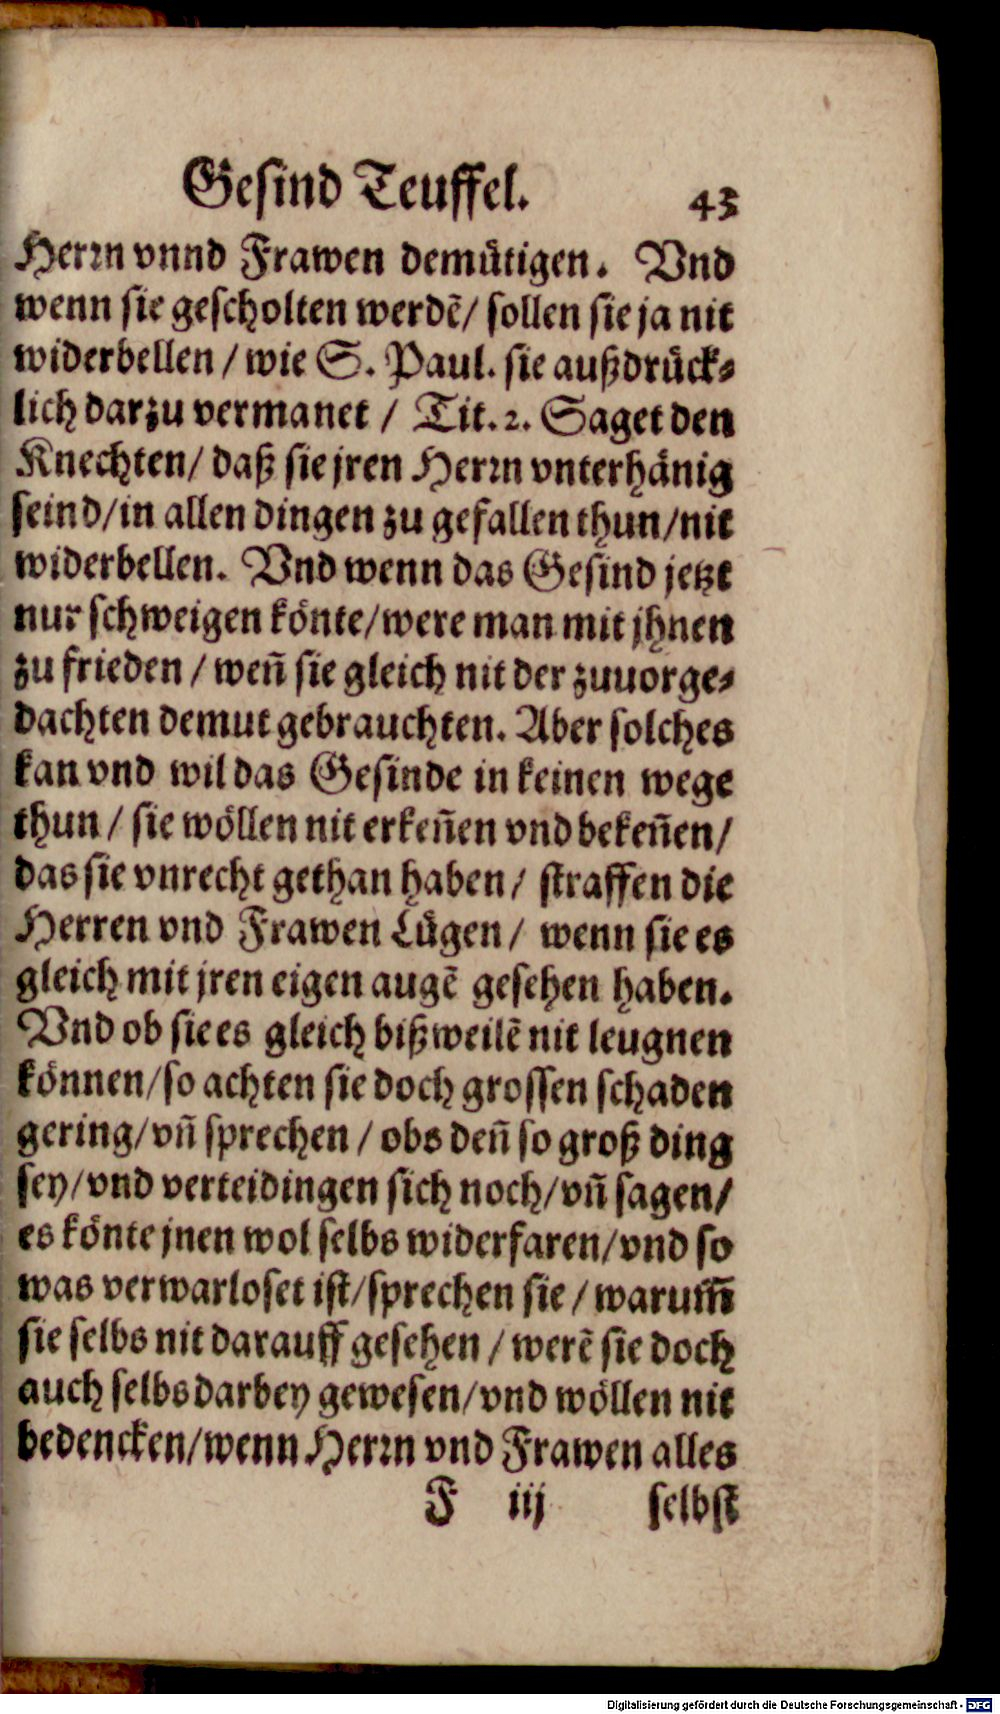 Gesind Teuffel. 43
Herrn vnnd Frawen demütigen. Vnd
wenn sie gescholten werdẽ/ sollen sie ja nit
widerbellen / wie S. Paul. sie außdrück⸗
lich darzu vermanet / Tit. 2. Saget den
Knechten/ daß sie jren Herrn vnterhänig
seind/in allen dingen zu gefallen thun/nit
widerbellen. Vnd wenn das Gesind jetzt
nur schweigen könte/were man mit jhnen
zu frieden / weñ sie gleich nit der zuuorge⸗
dachten demut gebrauchten. Aber solches
kan vnd wil das Gesinde in keinen wege
thun / sie wöllen nit erkeñen vnd bekeñen/
das sie vnrecht gethan haben/ straffen die
Herren vnd Frawen Lügen/ wenn sie es
gleich mit jren eigen augẽ gesehen haben.
Vnd ob sie es gleich bißweilẽ nit leugnen
können/so achten sie doch grossen schaden
gering/vñ sprechen / obs deñ so groß ding
sey/vnd verteidingen sich noch/vñ sagen/
es könte jnen wol selbs widerfaren/vnd so
was verwarloset ist/sprechen sie / warum̃
sie selbs nit darauff gesehen / werẽ sie doch
auch selbs darbey gewesen/vnd wöllen nit
bedencken/wenn Herrn vnd Frawen alles
F iij selbst
Digitalisierung gefördert durch die Deutsche Forschungsgemeinschaft - DFG